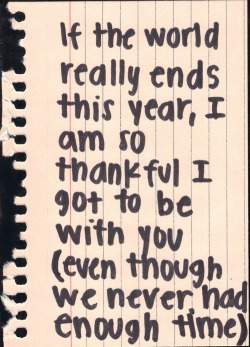 If the world
really ends
this year, I
am so
thankful I
got to be
with you
(even though
we never had
enough time)